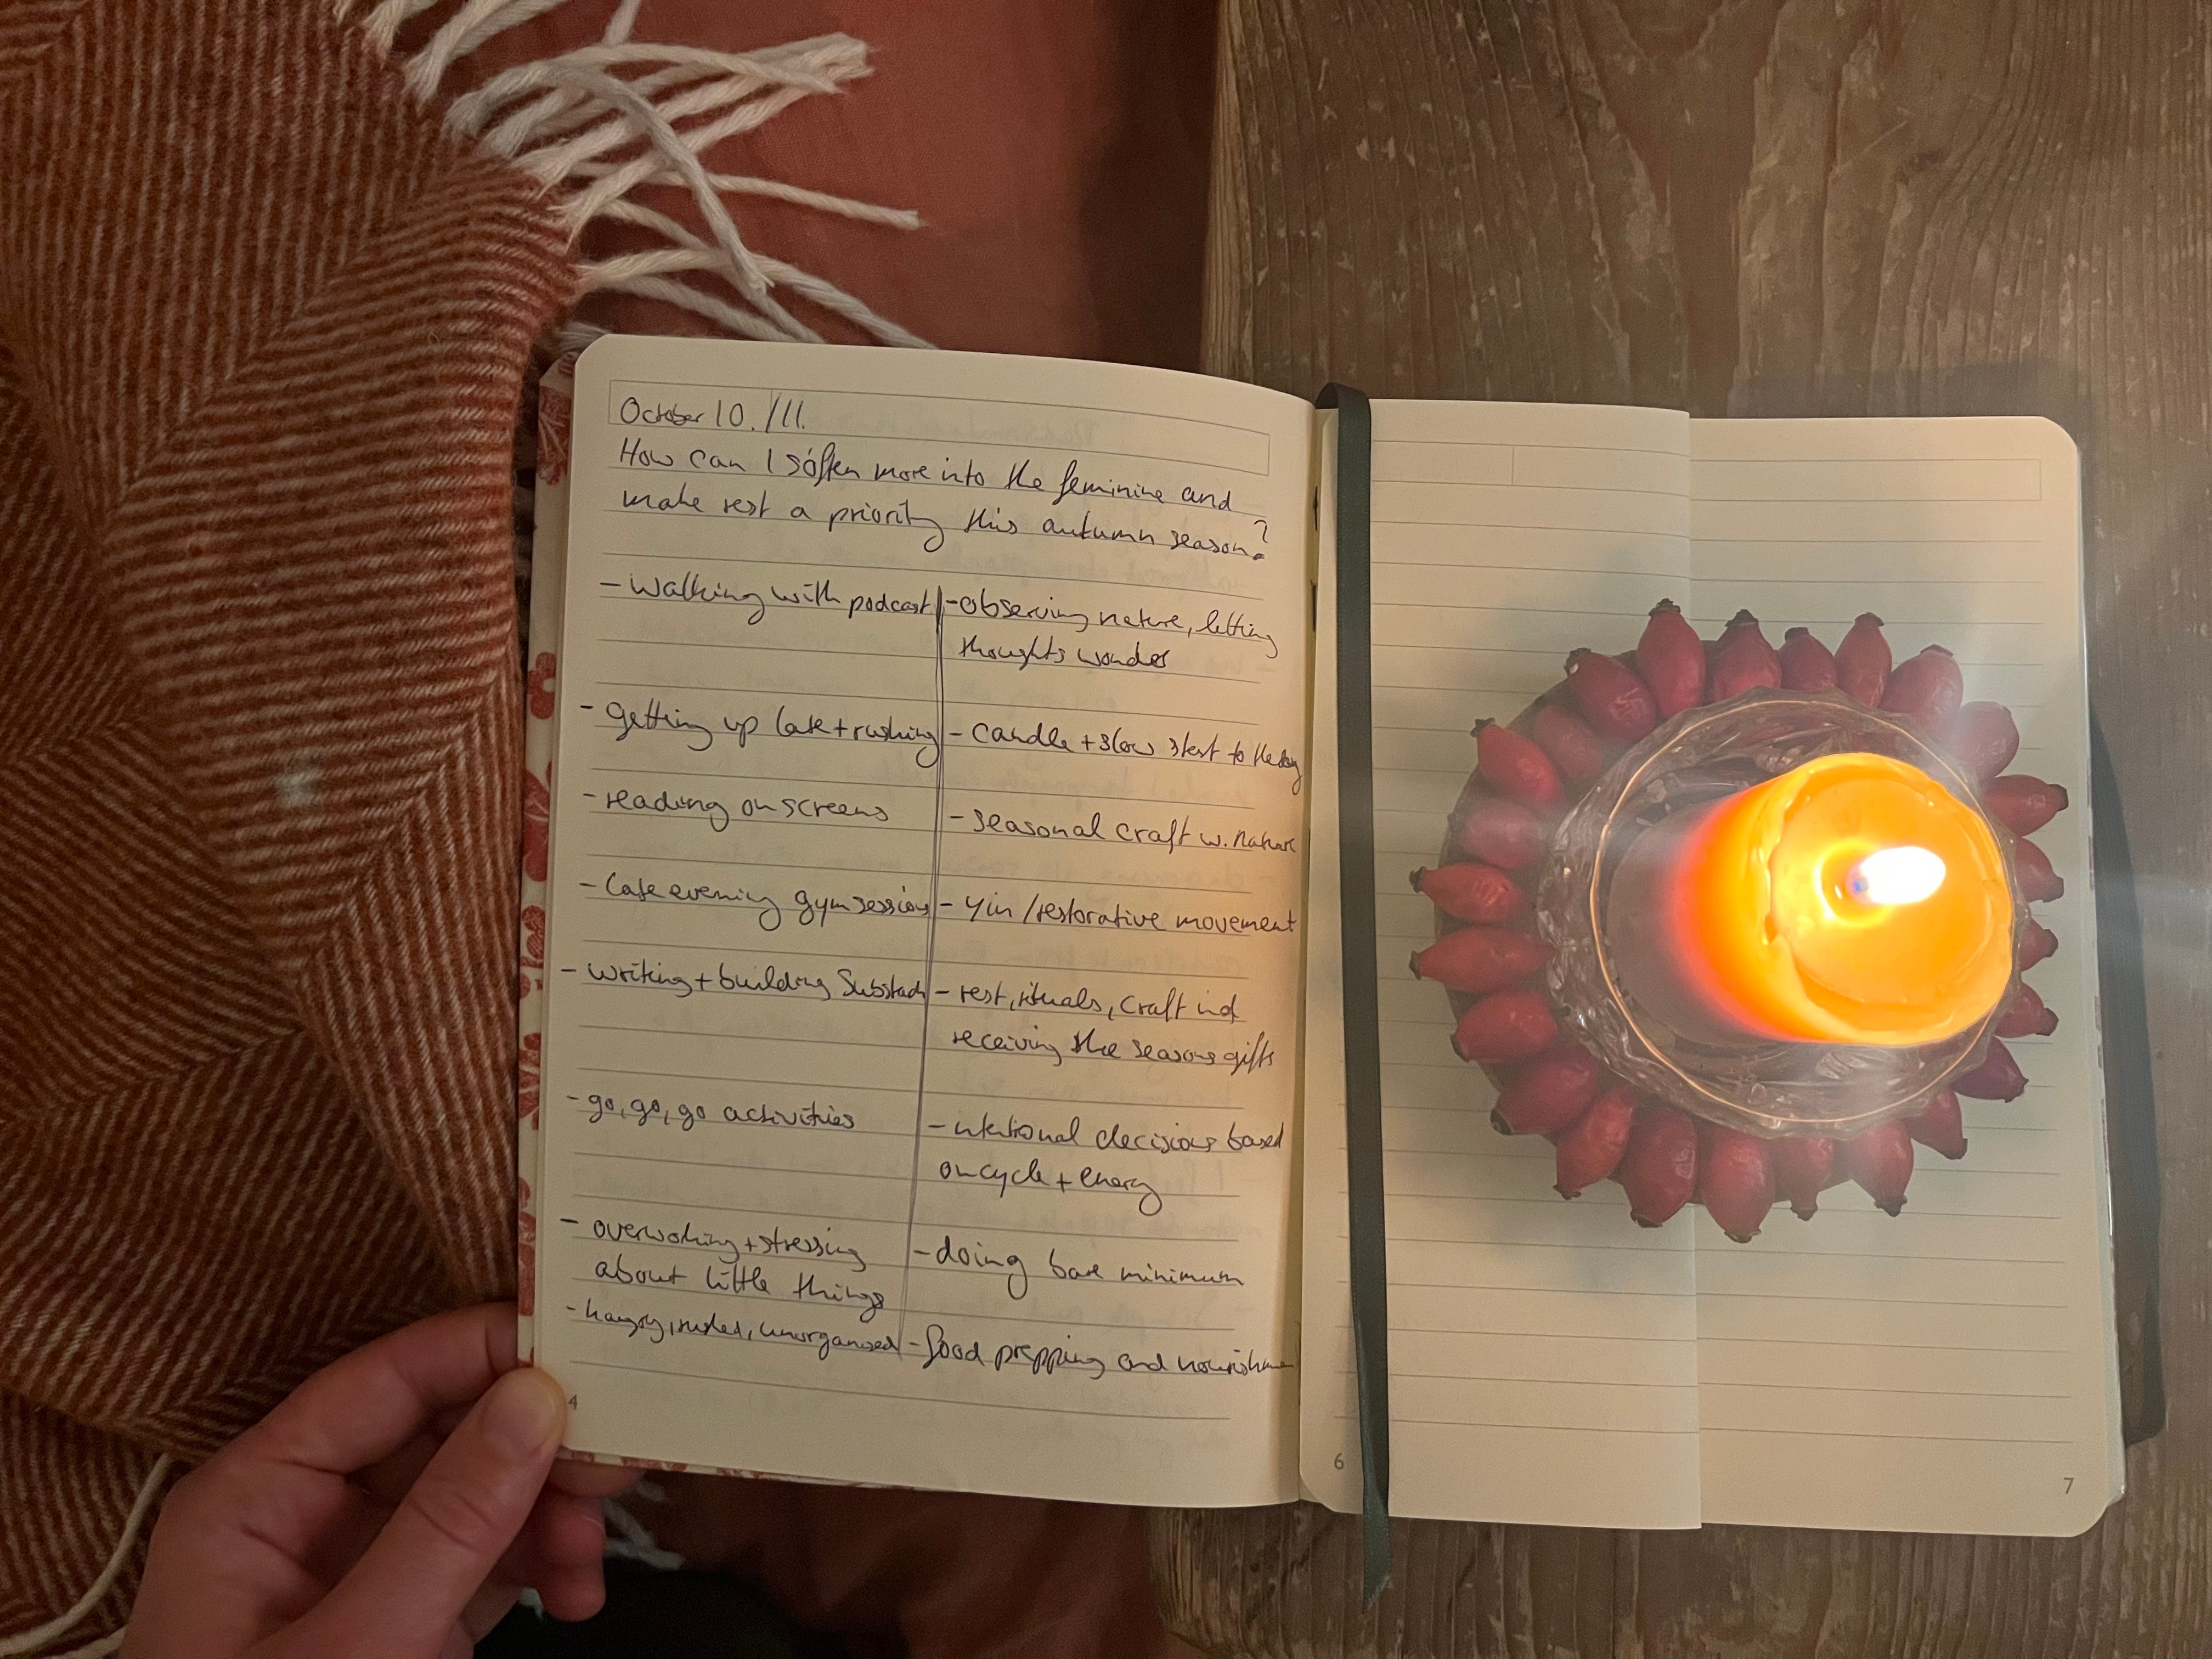 October 10./11.
How can I soften more into the feminine and
make rest a priority this autumn season?
- walking with podcast
- observing nature, letting
thoughts wonder
- getting up late + rushing
- candle + slow start to the day
- reading on screens
- seasonal craft w. nature
- late evening gym sessions
- yin / restorative movement
- writing + building Substack
- rest, rituals, craft and
receiving the seasons gifts
- go, go, go activities
- intentional decisions based
on cycle + energy
- overworking + stressing
about little things
- doing bare minimum
- hangry, rushed, unorganised
- food prepping and
4
6
7